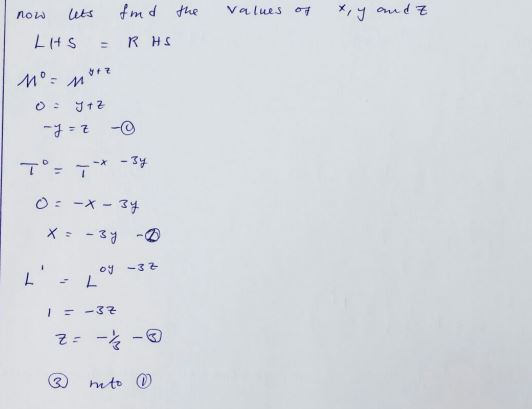 now lets find the values of x, y and z
LHS = RHS
M⁰ = M^(y+z)
0 = y+z
-y = z -①
T⁰ = T^(-x -3y)
0 = -x - 3y
x = -3y -②
L¹ = L^(0y -3z)
1 = -3z
z = -1/3 -③
③ into ①